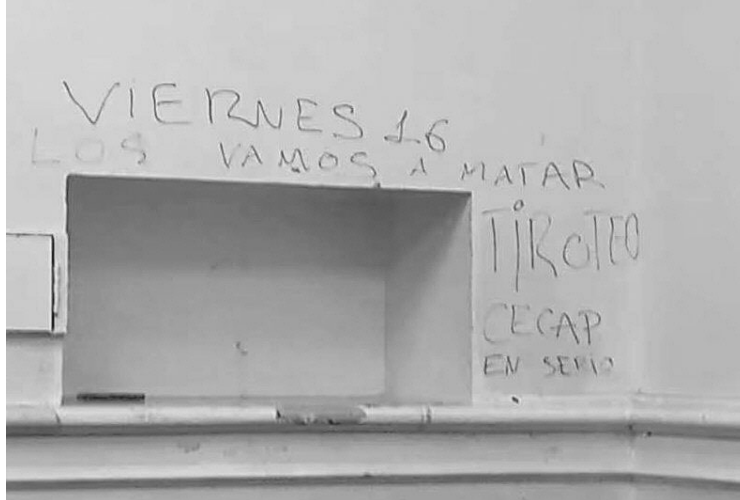 VIERNES 16
LOS VAMOS A MATAR
TiROTEO
CECAP
EN SERIO